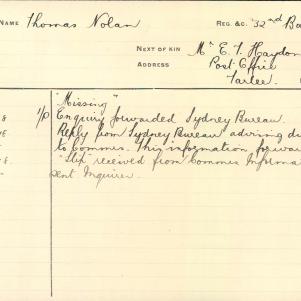 NAME Thomas Nolan REG. &C. 32nd Ba
NEXT OF KIN Mr E. T. Haydon
ADDRESS Post Office
Tarlee.
"Missing"
Enquiry forwarded Sydney Bureau.
Reply from Sydney Bureau advising di
to Commns. This information forwar
"Slip" received from Commns Informa
sent Inquirer.